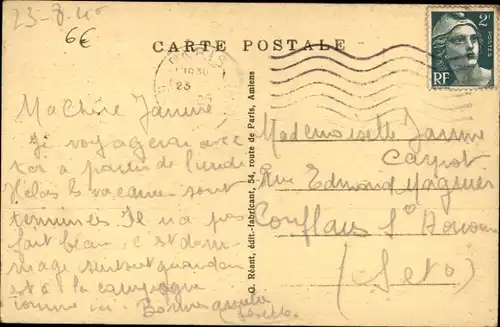 23-8-46
6€
CARTE POSTALE
PARIS
1930
23
2F
POSTES
RF
Ma Chère Janine,
Je voyagerai avec
toi a partir de lundi
Hélas les vacances sont
terminées Il n'a pas
fait beau, c'est dom-
mage surtout quand on
est à la campagne
comme ici. Bonnes
G. Réant, édit.-fabricant, 54, route de Paris, Amiens
Mademoiselle Janine
Rue Edmond Magnier
Conflans Ste Honorine
(Set O)